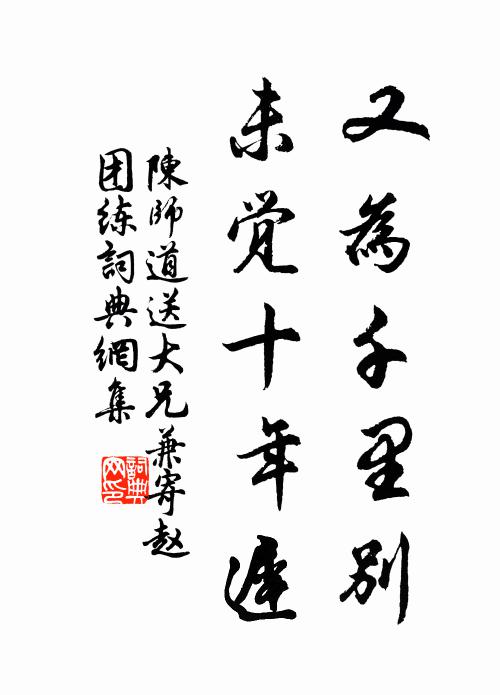 又為千里别
未觉十年遲
陳師道送大兄兼寄赵
团练詞典網集
詞典网印